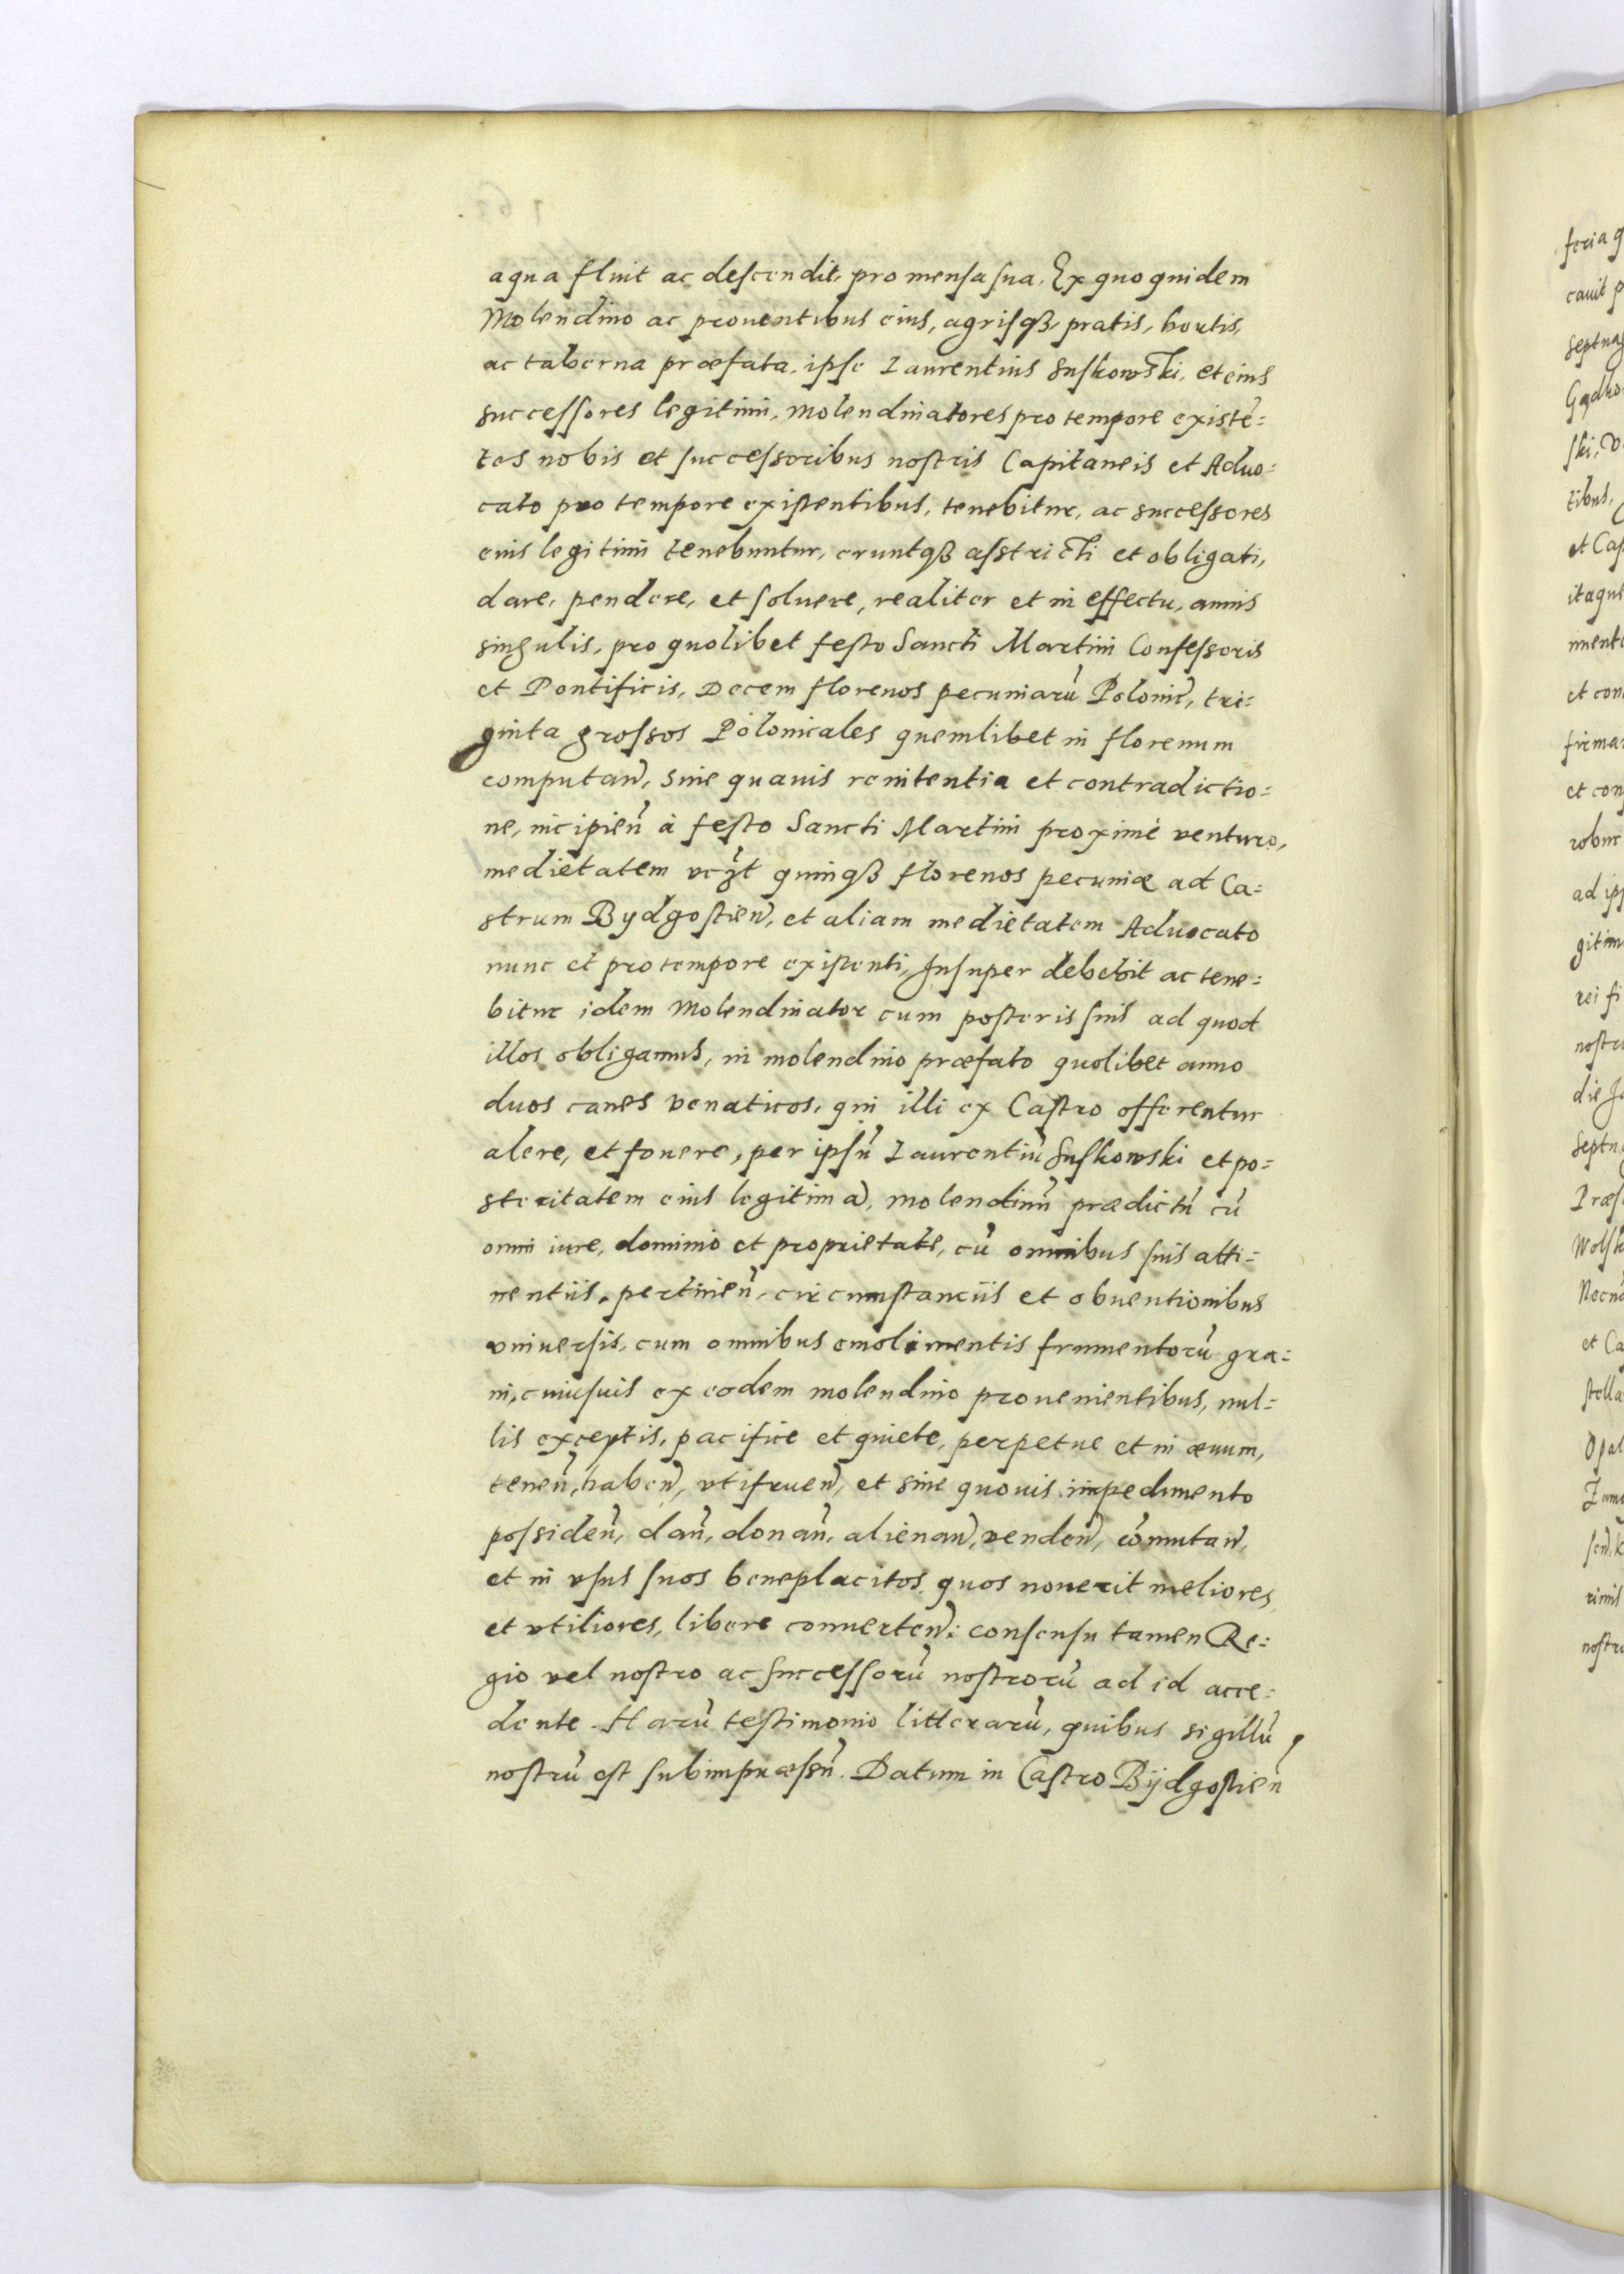 aqua fluit ac descendit, pro mensa sua. Ex quo quidem
Molendino ac prouentibus eius, agrisqȝ, pratis, hortis,
ac taberna præfata, ipse Laurentius Suskowski, et eius
successores legitimi, molendinatores pro tempore existē=
tes nobis et successoribus nostris Capitaneis et Aduo=
cato pro tempore existentibus, tenebitur, ac successores
eius legitimi tenebuntur, eruntqȝ asstricti et obligati,
dare, pendere, et soluere, realiter et in effectu, annis
singulis, pro quolibet festo Sancti Martini Confessoris
et Pontificis, Decem florenos pecuniarū Polonic̄, tri=
ginta grossos Polonicales quemlibet in florenum
computan̄, sine quauis renitentia et contradictio=
ne, incipien̄ à festo Sancti Martini proximè venturo,
medietatem vcꝫt quinqȝ florenos pecuniæ ad Ca=
strum Bydgostien̄, et aliam medietatem Aduocato
nunc et pro tempore existenti, Insuper debebit ac tene=
bitur idem Molendinator cum posteris suis ad quod
illos obligamus, in molendino præfato quolibet anno
duos canes venaticos, qui illi ex Castro offerentur
alere, et fouere, per ipsū Laurentiū Suskowski et po=
steritatem eius legitimā, molendinū prædictū cū
omni iure, dominio et proprietate, cū omnibus suis atti=
nentiis, pertinen̄, circumstanciis et obuentionibus
vniuersis, cum omnibus emolimentis frumentorū gra=
ni, cuiusuis ex eodem molendino prouenientibus, nul=
lis exceptis, pacifice et quiete, perpetue et in æuum,
tenen̄, haben̄, vtifruen̄, et sine quouis impedimento
possiden̄, dan̄, donan̄, alienan̄, venden̄, cōmutan̄,
et in vsus suos beneplacitos, quos nouerit meliores
et vtiliores, libere conuerten̄: consensu tamen Re=
gio vel nostro ac successorū nostrorū ad id acce=
dente. Harū testimonio litterarū, quibus sigillū
nostrū est subimpræssū. Datum in Castro Bydgostien̄